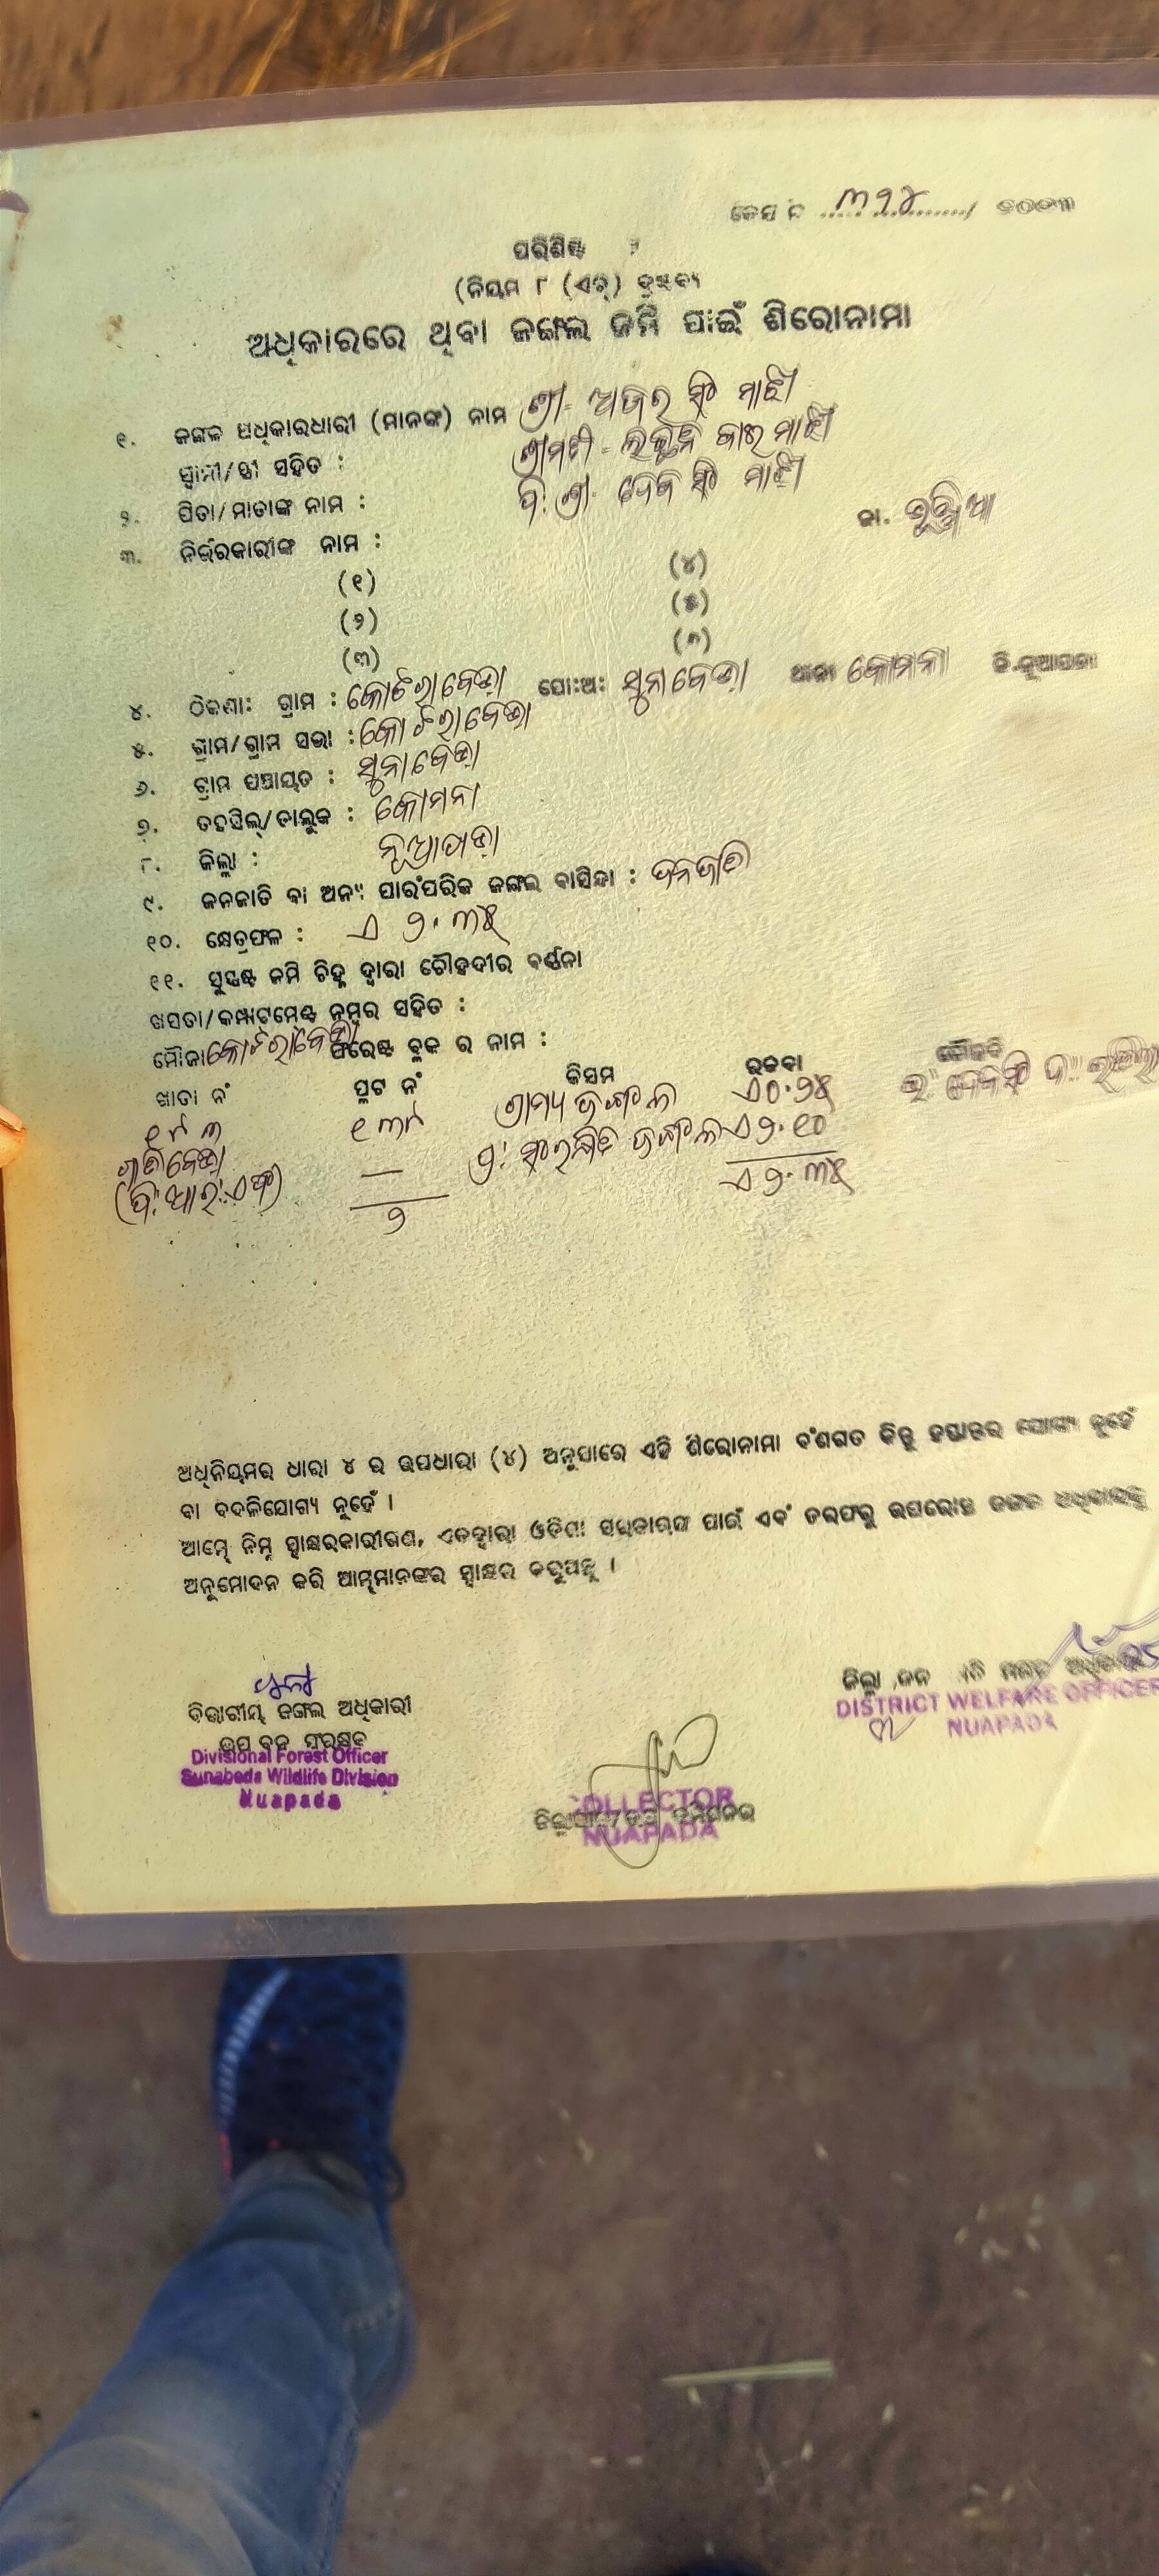 କେସ ନଂ ୩୨୪ / ୨୦୦୩
ପରିଶିଷ୍ଟ
(ନିୟମ ୮ (ଏଚ୍) ଦ୍ରଷ୍ଟବ୍ୟ
ଅଧିକାରରେ ଥିବା ଜଙ୍ଗଲ ଜମି ପାଇଁ ଶିରୋନାମା
୧. ଜଙ୍ଗଲ ଅଧିକାରଧାରୀ (ମାନଙ୍କ) ନାମ ଶ୍ରୀ ଅଜର ସିଂ ମାଝୀ
ସ୍ୱାମୀ/ସ୍ତ୍ରୀ ସହିତ : ଶ୍ରୀମତୀ ବାଇ ମାଝୀ
୨. ପିତା/ମାତାଙ୍କ ନାମ : ପି: ଶ୍ରୀ ଦେବ ସିଂ ମାଝୀ ଜା. ଭୁଞ୍ଜିଆ
୩. ନିର୍ଭରକାରୀଙ୍କ ନାମ :
(୧) (୪)
(୨) (୫)
(୩) (୬)
୪. ଠିକଣା: ଗ୍ରାମ : କୋଟରାବେଡ଼ା ପୋ:ଅ: ସୁନାବେଡ଼ା ଥାନା କୋମନା ଜି.ନୂଆପଡା
୫. ଗ୍ରାମ/ଗ୍ରାମ ସଭା : କୋଟରାବେଡା
୬. ଗ୍ରାମ ପଞ୍ଚାୟତ : ସୁନାବେଡ଼ା
୭. ତହସିଲ୍/ତାଲୁକ : କୋମନା
୮. ଜିଲ୍ଲା : ନୂଆପଡ଼ା
୯. ଜନଜାତି ବା ଅନ୍ୟ ପାରଂପରିକ ଜଙ୍ଗଲ ବାସିନ୍ଦା : ଜନଜାତି
୧୦. କ୍ଷେତ୍ରଫଳ : ଏ ୨.୩୫
୧୧. ସୁସ୍ପଷ୍ଟ ଜମି ଚିହ୍ନ ଦ୍ୱାରା ଚୌହଦୀର ବର୍ଣ୍ଣନା
ଖସଡା/କମ୍ପାଟମେଣ୍ଟ ନମ୍ବର ସହିତ :
ମୌଜା କୋଟରାବେଡ଼ା ଫରେଷ୍ଟ ବ୍ଲକ ର ନାମ :
ଖାତା ନଂ ପ୍ଲଟ ନଂ କିସମ ରକବା ଚୌହଦି
୧୮୩ ୧୩୮ ଗ୍ରାମ୍ୟ ଜଙ୍ଗଲ ଏ୦.୨୫ ଉ" ଦେବସିଂ ଦ"
(ପି:ଆର:ଏଫ) — ପ୍ର: ସଂରକ୍ଷିତ ଜଙ୍ଗଲ ଏ୨.୧୦
୨ ଏ ୨.୩୫
ଅଧିନିୟମର ଧାରା ୪ ର ଉପଧାରା (୪) ଅନୁସାରେ ଏହି ଶିରୋନାମା ବଂଶଗତ କିନ୍ତୁ ହସ୍ତାନ୍ତର ଯୋଗ୍ୟ ନୁହେଁ
ବା ବଦଳିଯୋଗ୍ୟ ନୁହେଁ ।
ଆମ୍ଭେ ନିମ୍ନ ସ୍ୱାକ୍ଷରକାରୀଗଣ, ଏତଦ୍ଦ୍ୱାରା ଓଡିଶା ସରକାରଙ୍କ ପାଇଁ ଏବଂ ତରଫରୁ ଉପରୋକ୍ତ ଜଙ୍ଗଲ ଅଧିକାରକୁ
ଅନୁମୋଦନ କରି ଆମ୍ଭମାନଙ୍କର ସ୍ୱାକ୍ଷର କରୁଅଛୁ ।
ବିଭାଗୀୟ ଜଙ୍ଗଲ ଅଧିକାରୀ
ଉପ ବନ ସଂରକ୍ଷକ
Divisional Forest Officer
Sunabeda Wildlife Division
Nuapada
COLLECTOR
NUAPADA
ଜିଲ୍ଲା ଜନ ମଙ୍ଗଳ ଅଧିକାରୀ
DISTRICT WELFARE OFFICER
NUAPADA